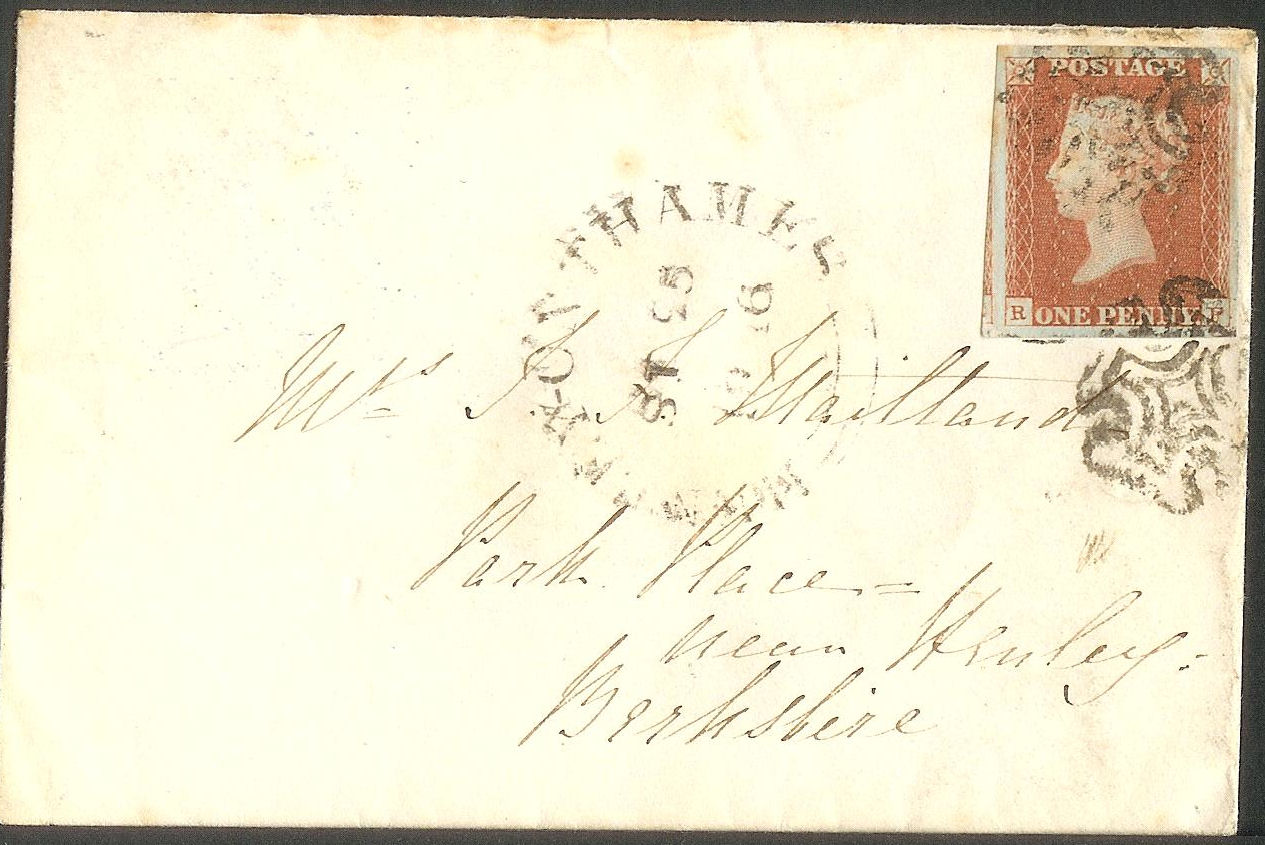 POSTAGE
R ONE PENNY F
HENLEY-ON-THAMES
Mrs F. F. Maitland
Park Place =
near Henley.
Berkshire